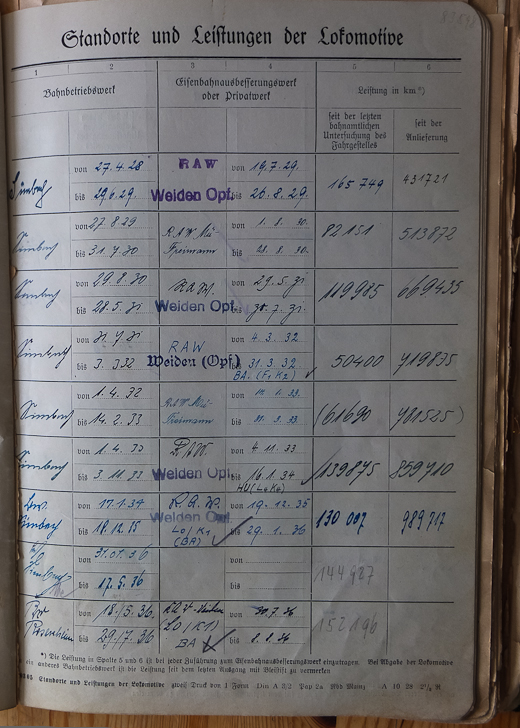 Standorte und Leistungen der Lokomotive
1 2 3 4 5 6
Bahnbetriebswerk
Eisenbahnausbesserungswerk
oder Privatwerk
Leistung in km *)
seit der letzten
bahnamtlichen
Untersuchung des
Fahrgestelles
seit der
Anlieferung
Simbach von 27.4.28 RAW von 19.7.29. 165 749 431721
bis 29.6.29. Weiden Opf. bis 26.8.29.
Simbach von 27.8.29 R.A.W. Mü- von 1. 8. 30. 82151 513872
bis 31.7.30 Freimann bis 28. 8. 30.
Simbach von 29.8.30 R.A.W. von 29.5.31 669435
bis 28.5.31 Weiden Opf. bis 30.7.31.
Simbach von 31.7.31 RAW von 4.3.32 50400 719835
bis 3.3.32 Weiden (Opf.) bis 31.3.32
BA.
Simbach von 1.4.32 RAW Mü- von (61690 781525)
bis 14.2.33 Freimann bis 31.3.33
Simbach von 1.4.33 R.A.W. von 4 11.33 139875 859710
bis 3.11.33 Weiden Opf. bis 16.1.34
Bw. von 17.1.34 R.A.W. von 19.12.35 130 007 989717
Simbach bis Weiden Opf. bis 29.1.36
Lo/K1
(BA)
Simbach von 31.01.36 von 144927
bis 17.5.36 bis
Rosenheim von 18./5.36. von 30.7.36 152196
bis 29./7.36 (LO/K1) bis 8.8.36
BA
*) Die Leistung in Spalte 5 und 6 ist bei jeder Zuführung zum Eisenbahnausbesserungswerk einzutragen. Bei Abgabe der Lokomotive
ein anderes Bahnbetriebswerk ist die Leistung seit dem letzten Ausgang mit Bleistift zu vermerken.
Standorte und Leistungen der Lokomotive zweif Druck von 1 Form Din A 3/2 Pap 2a Rbd Mainz A 10 29